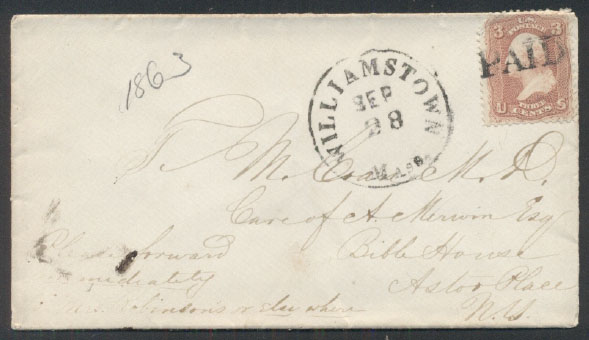 U.S.
3 3
PAID
THREE
U CENTS S
1863
WILLIAMSTOWN
SEP
28
MASS.
T. M. M.D.
Care of A. Merwin Esq
Bible House
Astor Place
N.Y.
Please forward
immediately
or elsewhere